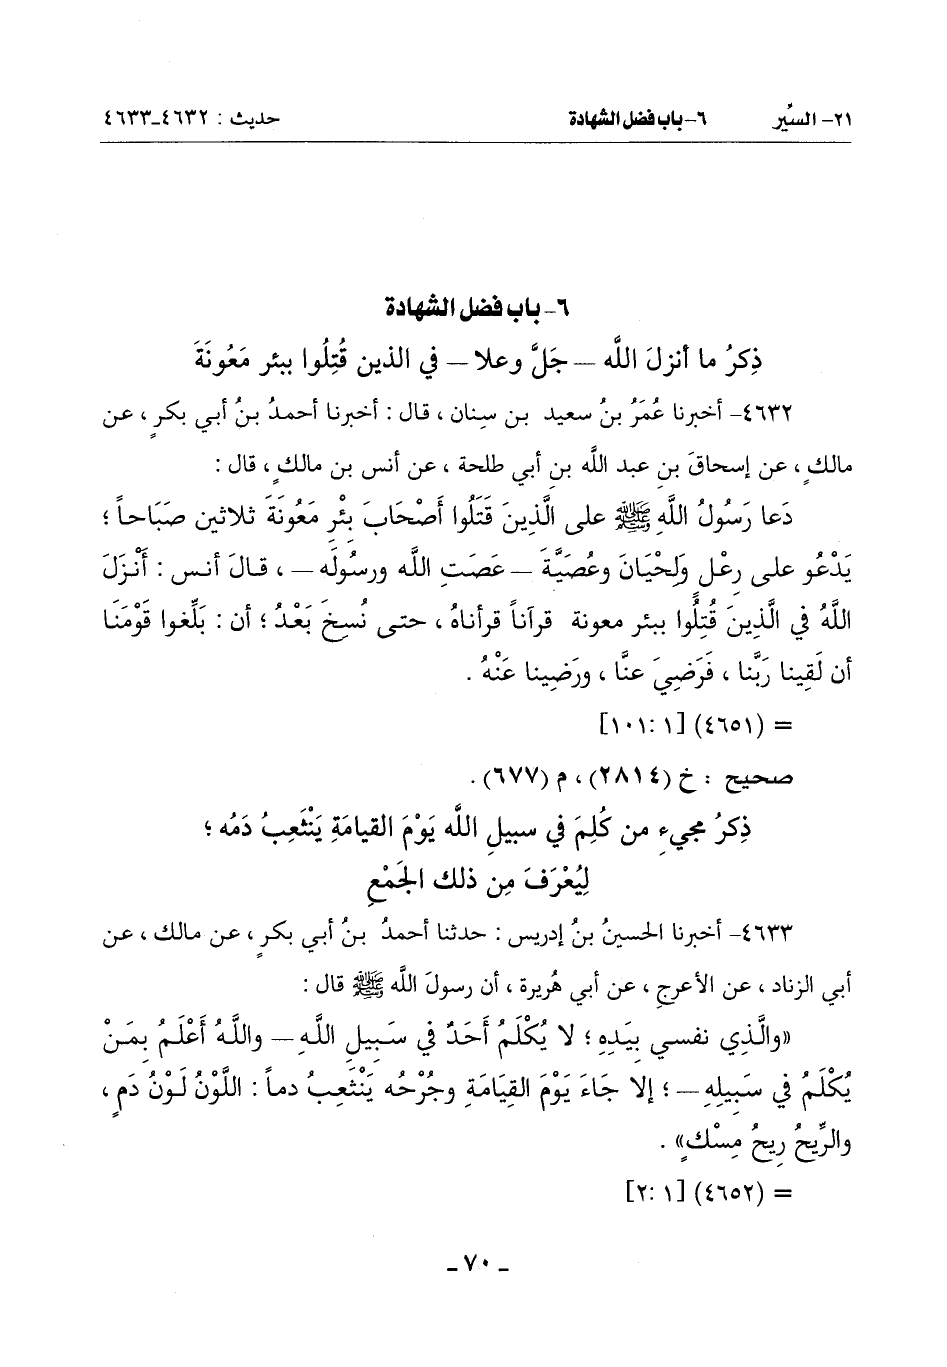 ٢١- السِّير ٦- باب فضل الشهادة حديث : ٤٦٣٢-٤٦٣٣
٦- باب فضل الشهادة
ذِكرُ ما أنزلَ اللَّه – جَلَّ وعلا – في الذين قُتِلُوا ببئر مَعُونَةَ
٤٦٣٢- أخبرنا عُمَرُ بنُ سعيد بن سِنان ، قال : أخبرنا أحمدُ بنُ أبي بكرٍ ، عن
مالكٍ ، عن إسحاقَ بنِ عبد اللَّه بنِ أبي طلحة ، عن أنس بن مالكٍ ، قال :
دَعا رَسُولُ اللَّهِ ﷺ على الَّذِينَ قَتَلُوا أَصْحَابَ بِئْرِ مَعُونَةَ ثلاثين صَبَاحاً ؛
يَدْعُو على رِعْلٍ وَلِحْيَانَ وعُصَيَّةَ – عَصَتِ اللَّه ورسُولَه – ، قـالَ أنـس : أَنْزَلَ
اللَّهُ في الَّذِينَ قُتِلُوا ببئر معونة قرآناً قرأناهُ ، حتـى نُسخَ بَعْدُ ؛ أن : بَلِّغوا قَوْمَنَا
أن لَقِينا رَبَّنا ، فَرَضِيَ عنَّا ، ورَضِينا عَنْهُ .
= (٤٦٥١) [١ :١٠١]
صحيح : خ (٢٨١٤) ، م (٦٧٧) .
ذِكرُ مجيءِ من كُلِمَ في سبيلِ اللَّه يَوْمَ القيامَةِ يَنْثَعِبُ دَمُه ؛
لِيُعْرَفَ مِن ذلك الجَمْعِ
٤٦٣٣- أخبرنا الحسينُ بنُ إدريس : حدثنا أحمدُ بنُ أبي بكرٍ ، عن مالك ، عن
أبي الزناد ، عن الأعرجِ ، عن أبي هُريرة ، أن رسولَ اللَّه ﷺ قال :
«والَّذِي نفسي بِيَدِهِ ؛ لا يُكْلَمُ أَحَدٌ في سَـبِيلِ اللَّـهِ – واللَّـهُ أَعْلَمُ بِمَـنْ
يُكْلَمُ في سَبِيلِهِ – ؛ إلا جَاءَ يَوْمَ القِيامَةِ وجُرْحُه يَنْثَعِبُ دماً : اللَّوْنُ لَـوْنُ دَمٍ ،
والرِّيحُ رِيحُ مِسْكٍ» .
= (٤٦٥٢) [١ :٢]
- ٧٠ -